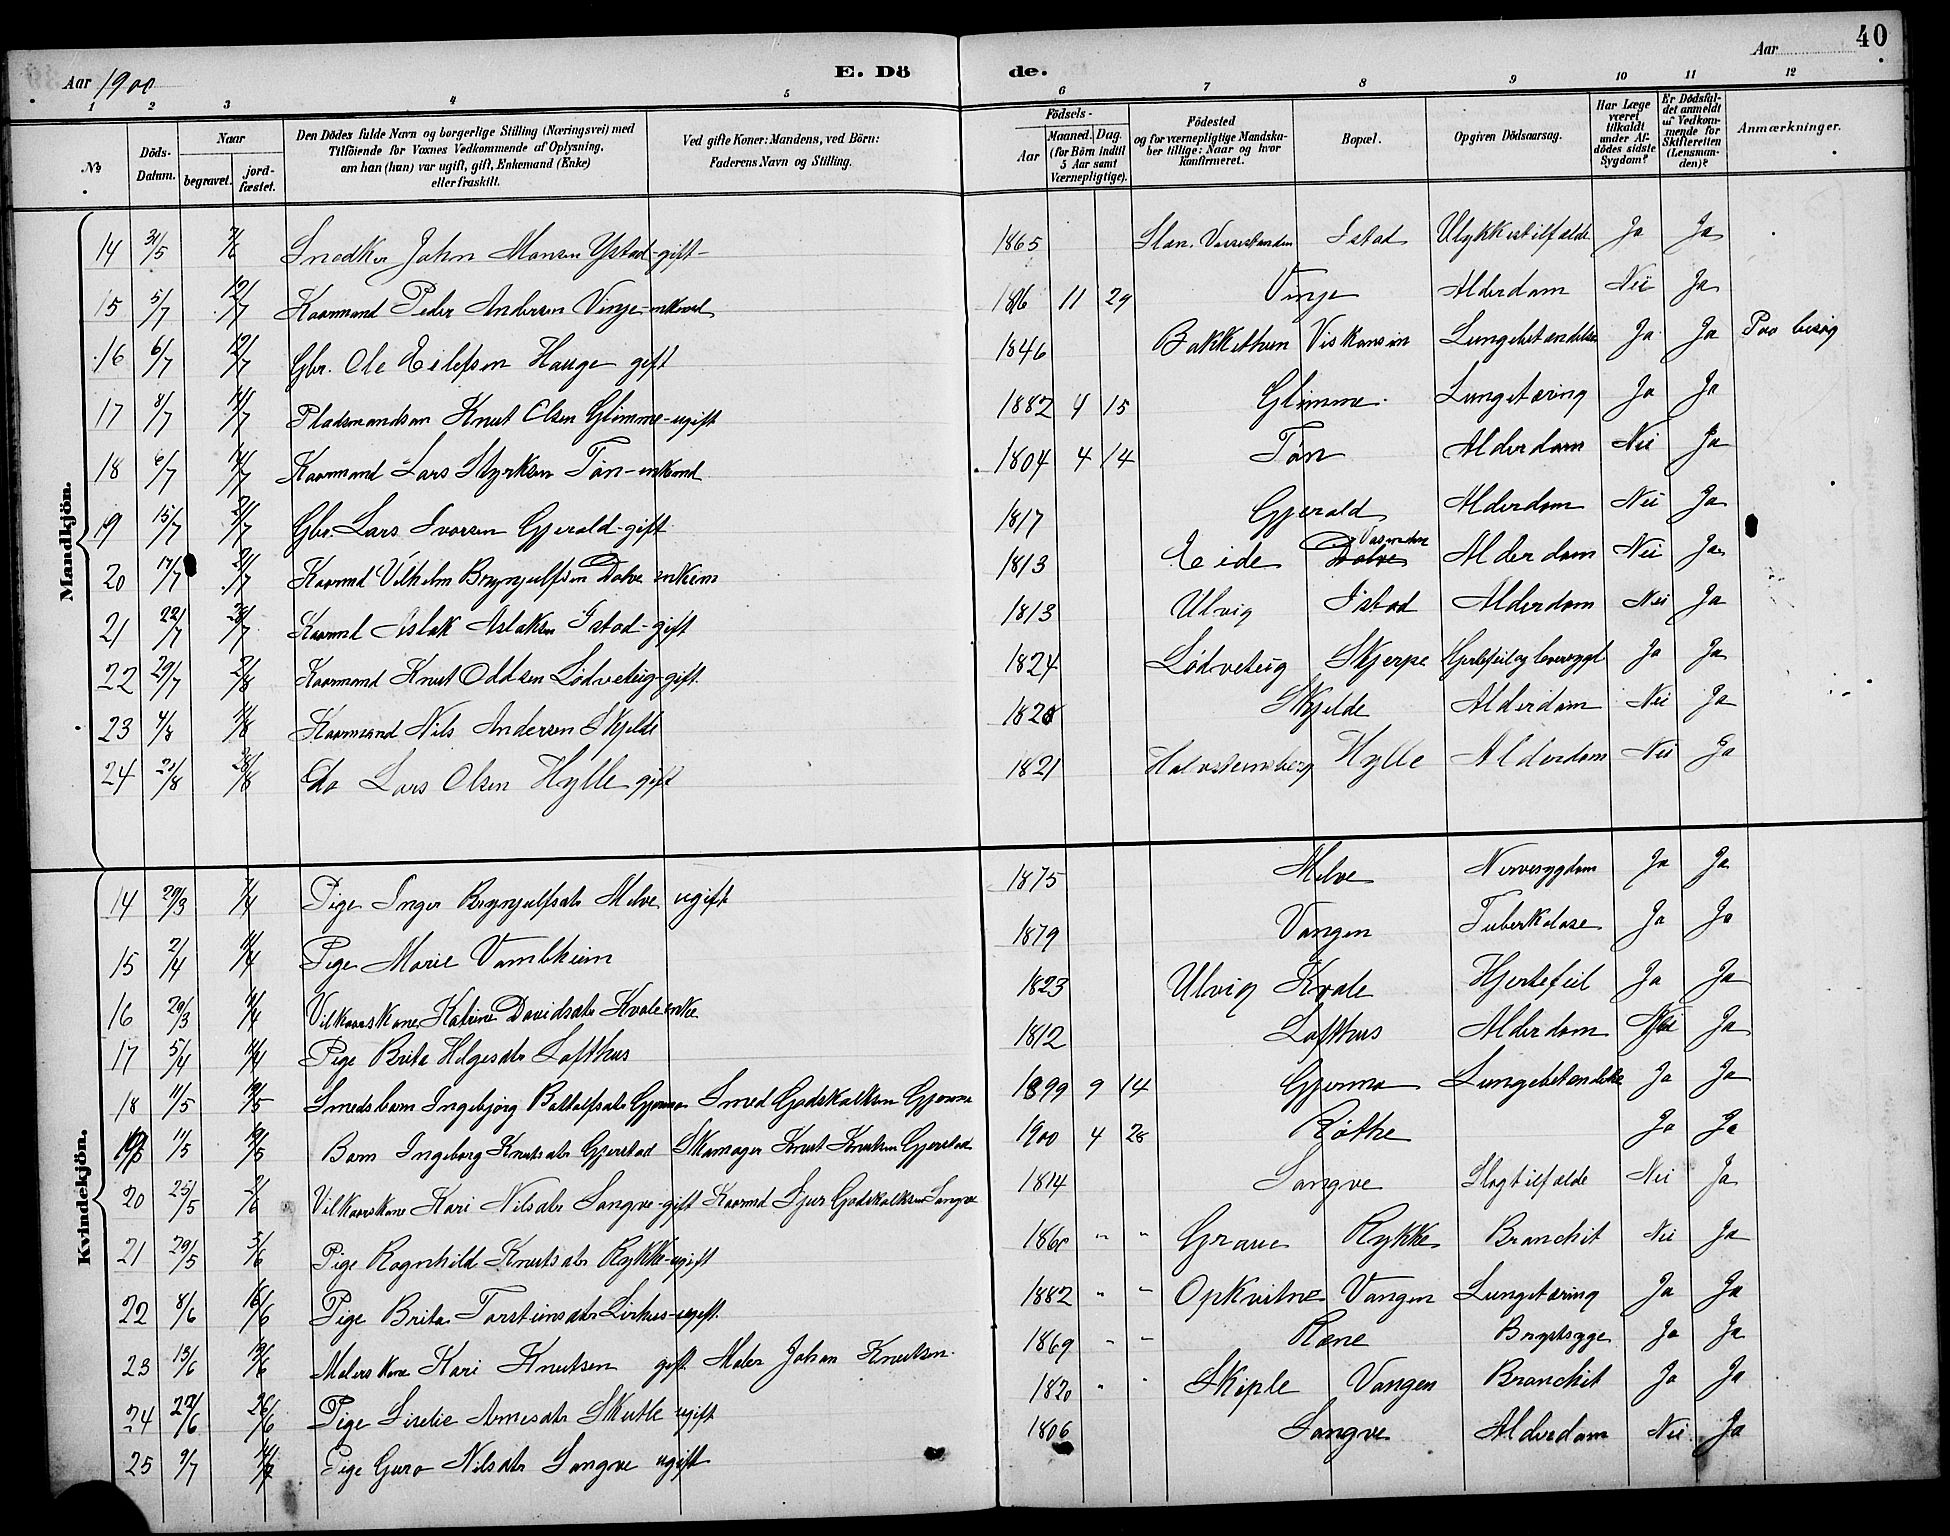 Aar 1900 E. Dö de. Aar 40
1 2 3 4 5 6 7 8 9 10 11 12
№ Döds-Datum. Naar begravet. jordfæstet. Den Dödes fulde Navn og borgerlige Stilling (Næringsvei) med Tilföiende for Voxnes Vedkommende af Oplysning, om han (hun) var ugift, gift, Enkemand (Enke) eller fraskilt. Ved gifte Koner: Mandens, ved Börn: Faderens Navn og Stilling. Födsels- Aar Maaned. Dag. (for Börn indtil 5 Aar samt Værnepligtige). Födested og for værnepligtige Mandskaber tillige: Naar og hvor Konfirmeret. Bopæl. Opgiven Dödsaarsag. Har Læge været tilkaldt under Afdödes sidste Sygdom? Er Dödsfaldet anmeldt af Vedkommende for Skifteretten (Lensmanden)? Anmærkninger.
Mandkjön.
14 31/5 7/6 Snedker John Monsen Ystad - gift - 1865 Istad Ulykkestilfælde Ja Ja
15 5/7 12/7 Kaarmand Peder Andersen Vinje - enkemd 11 29 Vinje Alderdom Nei Ja
16 6/7 12/7 Gbr. Ole Eilefsen Hauge gift 1846 Bakkethun Viskonsin Lungebetændelse Ja Ja Paa besøg
17 8/7 14/7 Pladsmandsøn Knut Olsen Glimme - ugift 1882 4 15 Glimme Lungetæring Ja Ja
18 6/7 14/7 Kaarmand Lars Styrksen Tøn - enkemd 1804 4 14 Tøn Alderdom Nei Ja
19 15/7 21/7 Gbr. Lars Ivarsen Gjerald - gift 1817 Gjerald Alderdom Nei Ja
20 17/7 21/7 Kaarmd Vilhelm Brynjulfsen Dolve enkem 1813 Eide Dolve Alderdom Nei Ja
21 22/7 28/7 Kaarmd Aslak Aslaksen Istad - gift 1813 Ulvig Istad Alderdom Nei Ja
22 29/7 2/8 Kaarmand Knut Oddsen Lødveteig - gift. 1824 Lødveteig Skjerpe Hjertefeil og leversygd Ja Ja
23 4/8 11/8 Kaarmand Nils Andersen Skjelde Skjelde Alderdom Nei Ja
24 21/8 28/8 Do Lars Olsen Hylle gift 1821 Hylle Alderdom Nei Ja
Kvindekjön.
14 29/3 7/4 Pige Inger Brynjulfsdtr Melve ugift 1875 Melve Nervesygdom Ja Ja
15 2/4 11/4 Pige Marie Vambheim 1879 Vangen Tuberkolose Ja Ja
16 29/3 11/4 Vilkaarskone Katrine Davidsdtr Kvale enke 1823 Ulvig Kvale Hjertefeil Ja Ja
17 5/4 11/4 Pige Brita Helgesdtr Lofthus 1812 Lofthus Alderdom Nei Ja
18 11/5 19/5 Smedsbarn Ingebjørg Bottolfsdtr Gjerme Smed Godskalksen Gjerme 1899 9 14 Gjerme Lungebetændelse Ja Ja
19 11/5 19/5 Barn Ingeborg Knutsdtr Gjerstad Skomager Knut Knutsen Gjerstad 1900 4 28 Røthe Ja Ja
20 25/5 2/6 Vilkaarskone Kari Nilsdtr Sangve - gift Kaarmd Sjur Godskalksen Sangve 1814 Sangve Slagtilfælde Nei Ja
21 29/5 5/6 Pige Ragnhild Knutsdtr Rykke - ugift " " Graue Rykke Bronchit Nei Ja
22 8/6 16/6 Pige Brita Torsteinsdtr Lirhus - ugift. 1882 " " Opkvitne Vangen Lungetæring Ja Ja
23 13/6 19/6 Malerskone Kari Knutsen gift Maler Johan Knutsen. 1869 " " Rene Brystsyge Ja Ja
24 22/6 26/6 Pige Sirelie Arnesdtr Skutle ugift 1820 " " Skiple Vangen Bronchit Ja Ja
25 9/7 Pige Guro Nilsdtr Sangve ugift 1806 Sangve Alderdom Nei Ja